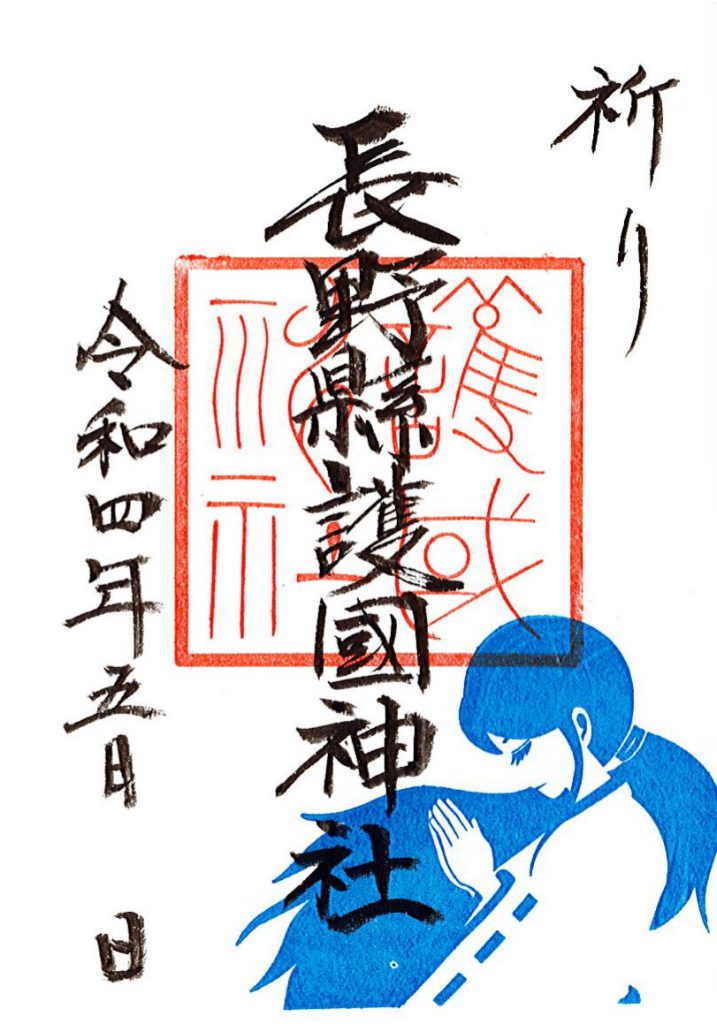 祈り
長野縣護國神社
令和四年五月 日